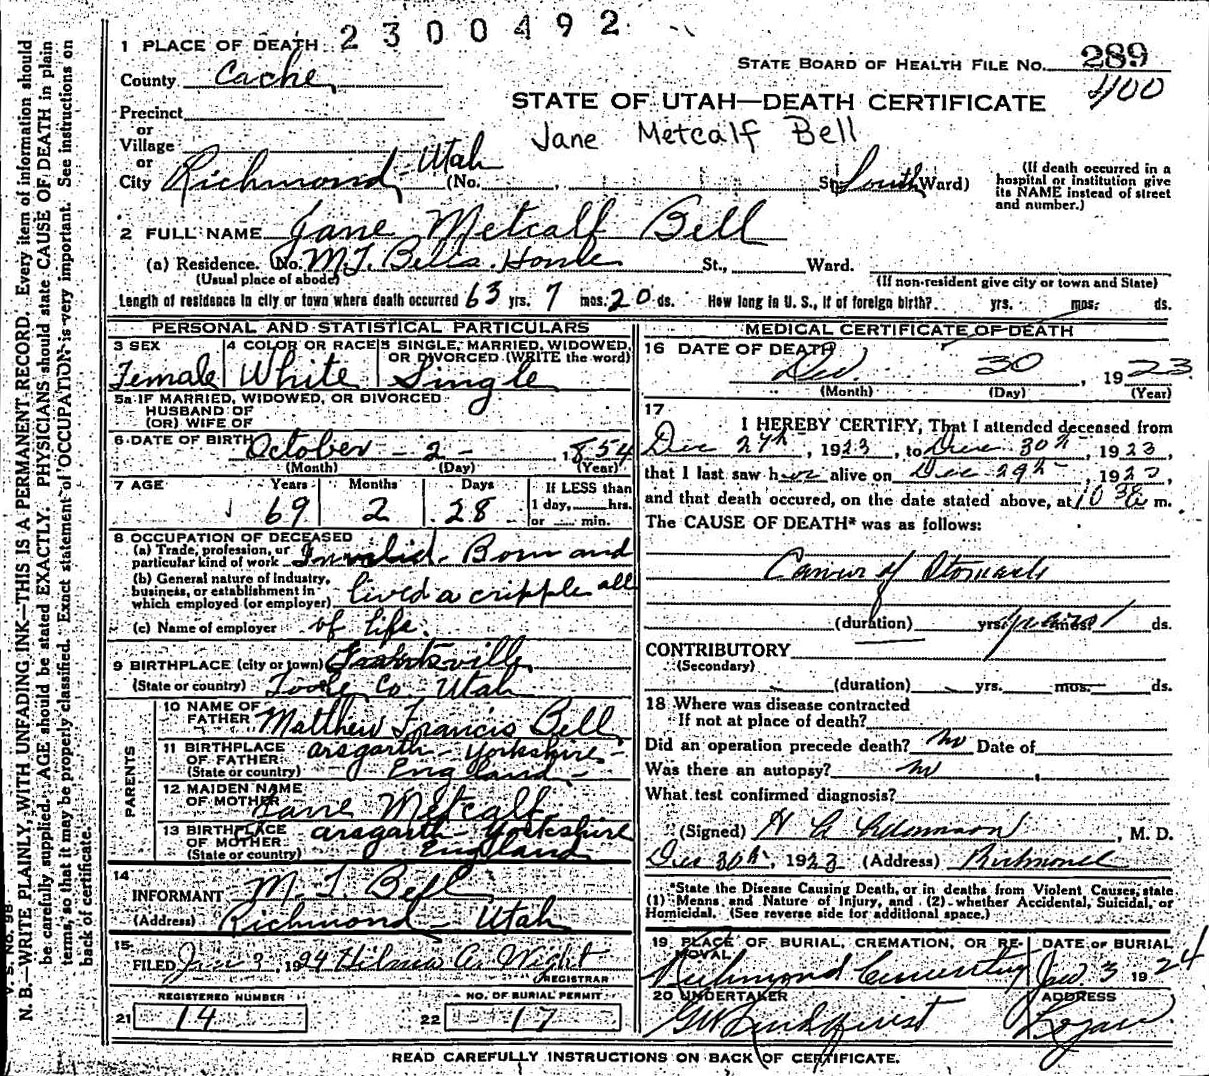 2300492
1 PLACE OF DEATH
County Cache
STATE BOARD OF HEALTH FILE NO. 289
400
STATE OF UTAH—DEATH CERTIFICATE
Jane Metcalf Bell
Precinct
or
Village
or
City Richmond - Utah (No. St., South Ward)
(If death occurred in a hospital or institution give its NAME instead of street and number.)
2 FULL NAME Jane Metcalf Bell
(a) Residence. No. M.F. Bells Home St., Ward.
(Usual place of abode) (If non-resident give city or town and State)
Length of residence in city or town where death occurred 63 yrs. 7 mos. 20 ds. How long in U. S., if of foreign birth? yrs. mos. ds.
PERSONAL AND STATISTICAL PARTICULARS
3 SEX Female
4 COLOR OR RACE White
5 SINGLE, MARRIED, WIDOWED, OR DIVORCED (WRITE the word) Single
5a IF MARRIED, WIDOWED, OR DIVORCED
HUSBAND OF
(OR) WIFE OF
6 DATE OF BIRTH October - 2 - 1854
(Month) (Day) (Year)
7 AGE Years Months Days
69 2 28
If LESS than 1 day, hrs. or min.
8 OCCUPATION OF DECEASED
(a) Trade, profession, or particular kind of work Invalid - Born and
(b) General nature of industry, business, or establishment in which employed (or employer) lived a cripple all
(c) Name of employer of life.
9 BIRTHPLACE (city or town)
(State or country) Tooele Co. Utah
PARENTS
10 NAME OF FATHER Matthew Francis Bell
11 BIRTHPLACE OF FATHER (State or country) arsgarth - Yorkshire - England -
12 MAIDEN NAME OF MOTHER Jane Metcalf
13 BIRTHPLACE OF MOTHER (State or country) arsgarth - Yorkshire England
14 INFORMANT M. F. Bell
(Address) Richmond - Utah
15 FILED Jan 3, 1924 A. Wight
REGISTRAR
REGISTERED NUMBER
21 14
NO. OF BURIAL PERMIT
22 17
MEDICAL CERTIFICATE OF DEATH
16 DATE OF DEATH Dec. 30, 1923
(Month) (Day) (Year)
17
I HEREBY CERTIFY, That I attended deceased from
Dec 27th, 1923, to Dec 30th, 1923,
that I last saw her alive on Dec 29th, 1923,
and that death occured, on the date stated above, at 10 m.
The CAUSE OF DEATH* was as follows:
Cancer of Stomach
(duration) yrs. mos. ds.
CONTRIBUTORY
(Secondary)
(duration) yrs. mos. ds.
18 Where was disease contracted
If not at place of death?
Did an operation precede death? no Date of
Was there an autopsy? no
What test confirmed diagnosis?
(Signed) Adamson, M. D.
Dec 30th, 1923 (Address) Richmond
*State the Disease Causing Death, or in deaths from Violent Causes, state (1) Means and Nature of Injury, and (2) whether Accidental, Suicidal, or Homicidal. (See reverse side for additional space.)
19 PLACE OF BURIAL, CREMATION, OR REMOVAL Richmond Cemetery
DATE OF BURIAL Jan. 3 1924
20 UNDERTAKER Lindquist
ADDRESS Logan
READ CAREFULLY INSTRUCTIONS ON BACK OF CERTIFICATE.
V. S. No. 98
N. B.—WRITE PLAINLY, WITH UNFADING INK—THIS IS A PERMANENT RECORD. Every item of information should
be carefully supplied. AGE should be stated EXACTLY. PHYSICIANS should state CAUSE OF DEATH in plain
terms, so that it may be properly classified. Exact statement of OCCUPATION is very important. See instructions on
back of certificate.